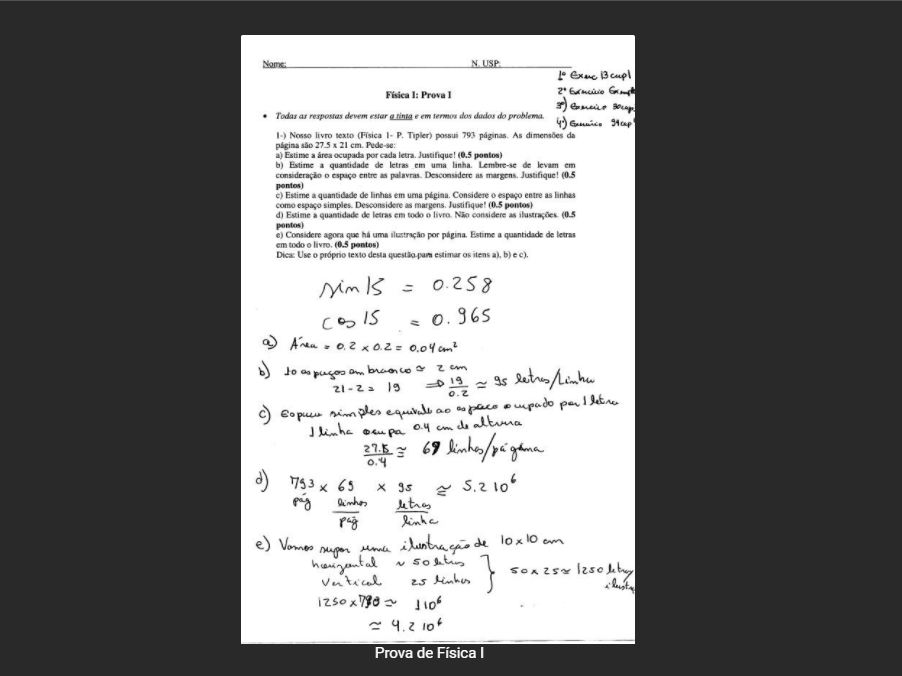 Nome: N. USP:
1º Exerc 13 cap 1
2º Exercício Exemplo
3º) Exercício 90 cap
4º) Exercício 94 cap
Física I: Prova I
• Todas as respostas devem estar a tinta e em termos dos dados do problema.
1-) Nosso livro texto (Física 1- P. Tipler) possui 793 páginas. As dimensões da
página são 27.5 x 21 cm. Pede-se:
a) Estime a área ocupada por cada letra. Justifique! (0.5 pontos)
b) Estime a quantidade de letras em uma linha. Lembre-se de levam em
consideração o espaço entre as palavras. Desconsidere as margens. Justifique! (0.5
pontos)
c) Estime a quantidade de linhas em uma página. Considere o espaço entre as linhas
como espaço simples. Desconsidere as margens. Justifique! (0.5 pontos)
d) Estime a quantidade de letras em todo o livro. Não considere as ilustrações. (0.5
pontos)
e) Considere agora que há uma ilustração por página. Estime a quantidade de letras
em todo o livro. (0.5 pontos)
Dica: Use o próprio texto desta questão para estimar os itens a), b) e c).
sin 15 = 0.258
cos 15 = 0.965
a) Área = 0.2 x 0.2 = 0.04 cm²
b) 10 espaços em branco ≃ 2 cm
21-2 = 19 ⇒ 19/0.2 ≃ 95 letras/Linha
c) Espaço simples equivale ao espaço ocupado por 1 letra
1 linha ocupa 0.4 cm de altura
27.5/0.4 ≅ 69 linhas/página
d) 793 x 69 x 95 ≅ 5.2 10⁶
pág linhas/pág letras/linha
e) Vamos supor uma ilustração de 10x10 cm
horizontal ~ 50 letras
Vertical 25 linhas } 50 x 25 ≃ 1250 letras/
1250 x 790 ≃ 1 10⁶
≃ 4.2 10⁶
Prova de Física I